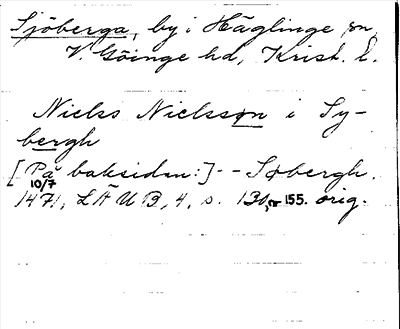 Sjöberga, by i Häglinge sn,
V. Göinge hd, Krist. l.
Nielss Nielsson i Sy-
bergh
[På baksidan:] -- Søbergh.
10/7
1471, LÄUB, 4, s. 130, nr 155. orig.